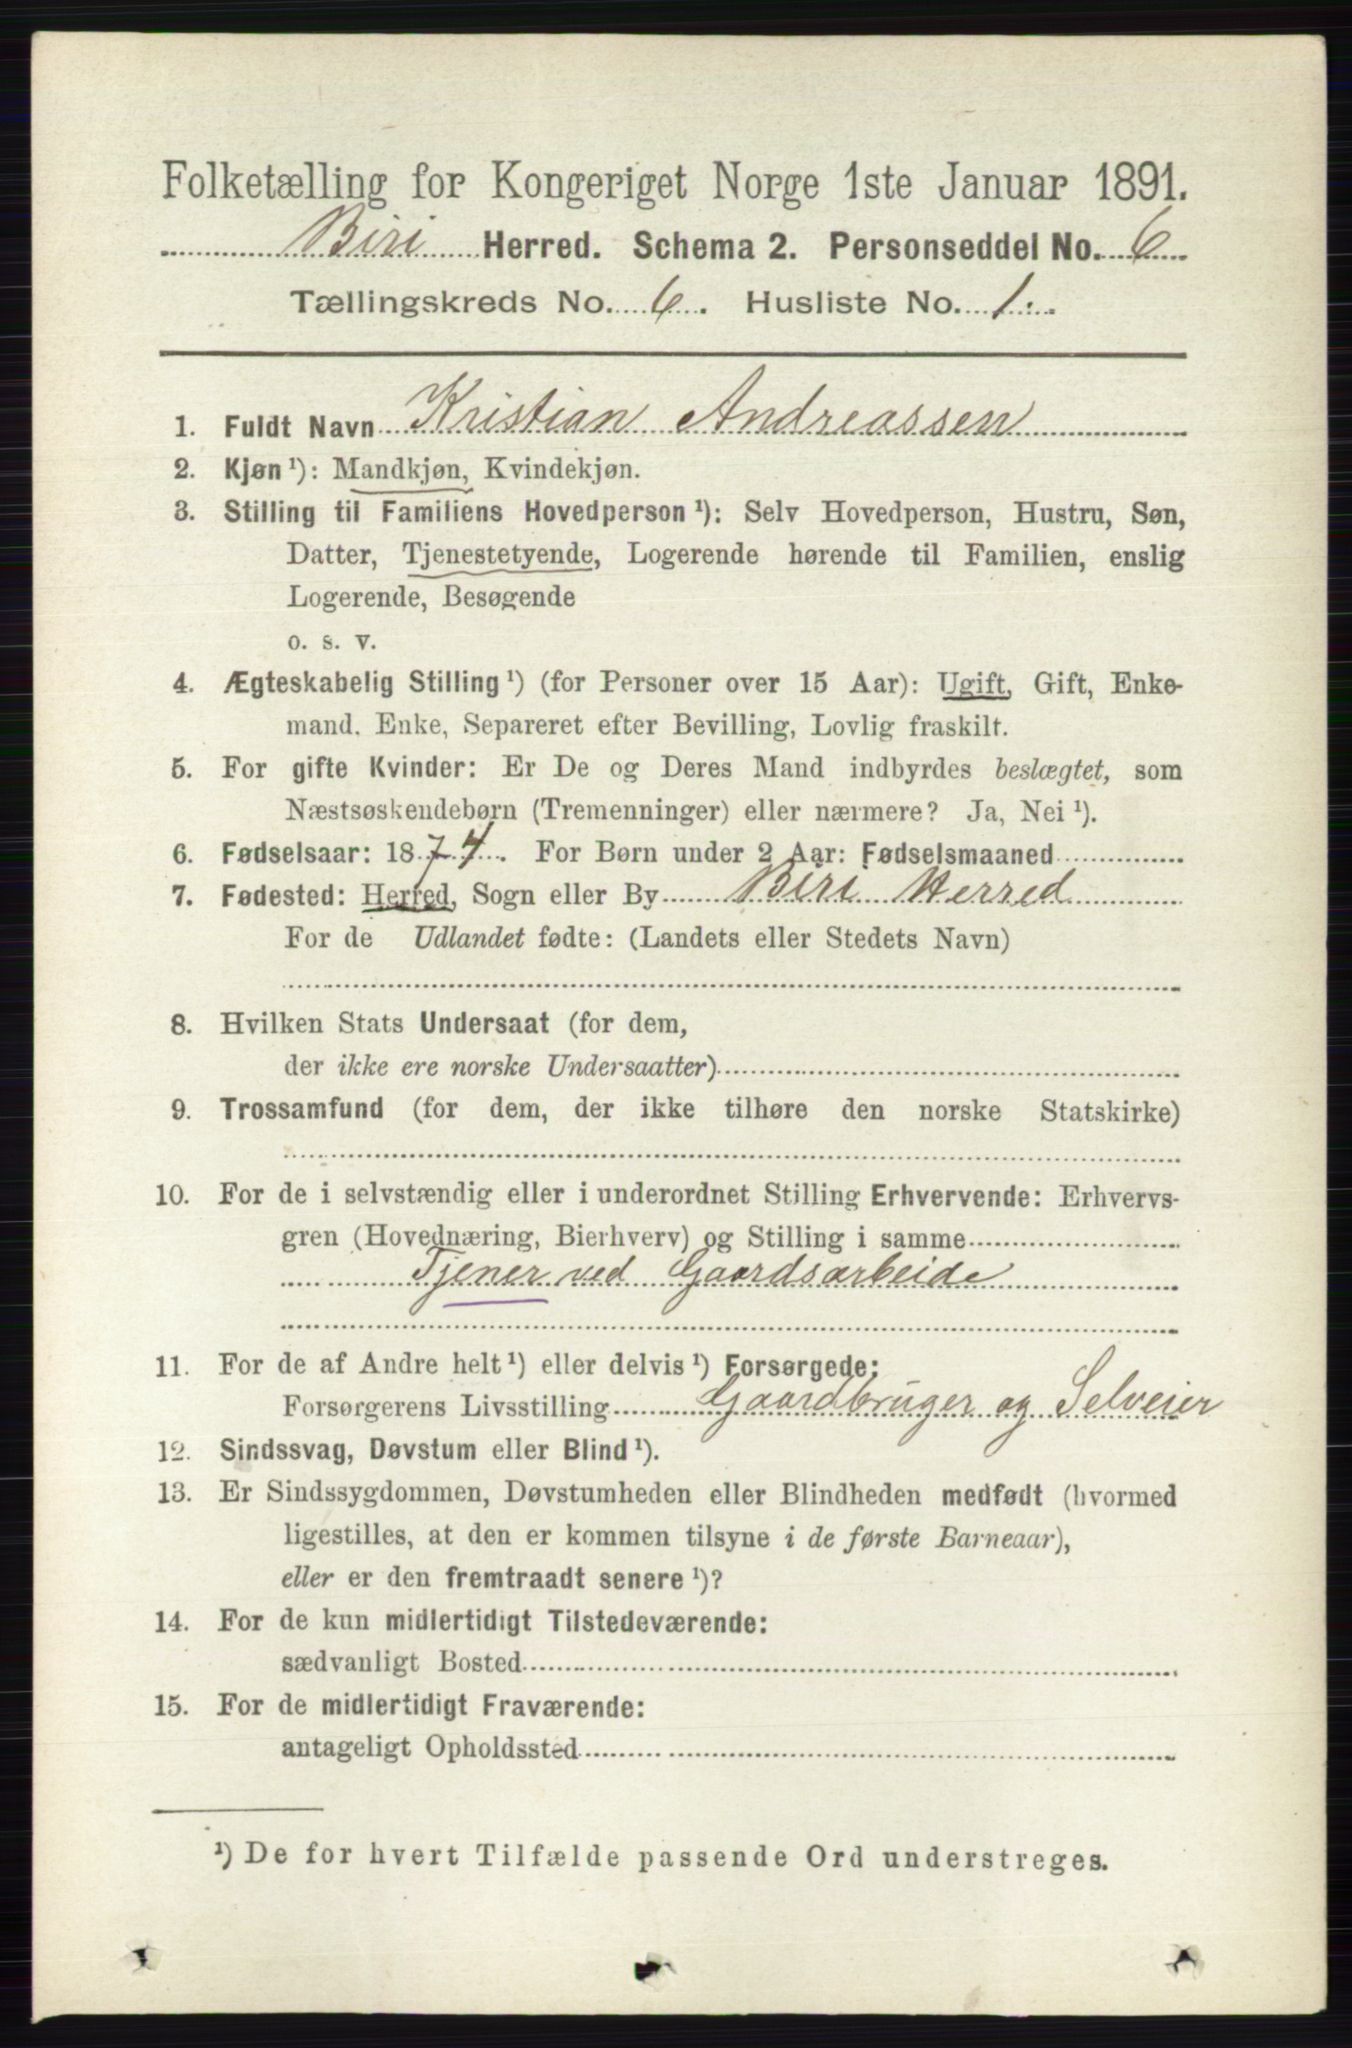 Folketælling for Kongeriget Norge 1ste Januar 1891.
Biri Herred. Schema 2. Personseddel No. 6
Tællingskreds No. 6. Husliste No. 1.
1. Fuldt Navn Kristian Andreassen
2. Kjøn ¹): Mandkjøn, Kvindekjøn.
3. Stilling til Familiens Hovedperson ¹): Selv Hovedperson, Hustru, Søn,
Datter, Tjenestetyende, Logerende hørende til Familien, enslig
Logerende, Besøgende
o. s. v.
4. Ægteskabelig Stilling ¹) (for Personer over 15 Aar): Ugift, Gift, Enke-
mand, Enke, Separeret efter Bevilling, Lovlig fraskilt.
5. For gifte Kvinder: Er De og Deres Mand indbyrdes beslægtet, som
Næstsøskendebørn (Tremenninger) eller nærmere? Ja, Nei ¹).
6. Fødselsaar: 1874. For Børn under 2 Aar: Fødselsmaaned
7. Fødested: Herred, Sogn eller By Biri Herred
For de Udlandet fødte: (Landets eller Stedets Navn)
8. Hvilken Stats Undersaat (for dem,
der ikke ere norske Undersaatter)
9. Trossamfund (for dem, der ikke tilhøre den norske Statskirke)
10. For de i selvstændig eller i underordnet Stilling Erhvervende: Erhvervs-
gren (Hovednæring, Bierhverv) og Stilling i samme
Tjener ved Gaardsarbeide
11. For de af Andre helt ¹) eller delvis ¹) Forsørgede:
Forsørgerens Livsstilling Gaardbruger og Selveier
12. Sindssvag, Døvstum eller Blind ¹).
13. Er Sindssygdommen, Døvstumheden eller Blindheden medfødt (hvormed
ligestilles, at den er kommen tilsyne i de første Barneaar),
eller er den fremtraadt senere ¹)?
14. For de kun midlertidigt Tilstedeværende:
sædvanligt Bosted
15. For de midlertidigt Fraværende:
antageligt Opholdssted
¹) De for hvert Tilfælde passende Ord understreges.